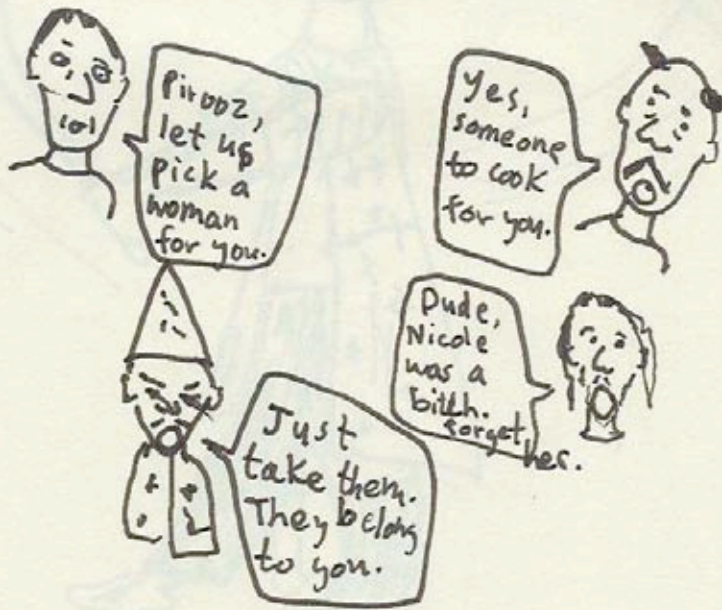 Pirooz,
let us
pick a
woman
for you.
Yes,
someone
to cook
for you.
Dude,
Nicole
was a
bitch.
forget
her.
Just
take them.
They belong
to you.